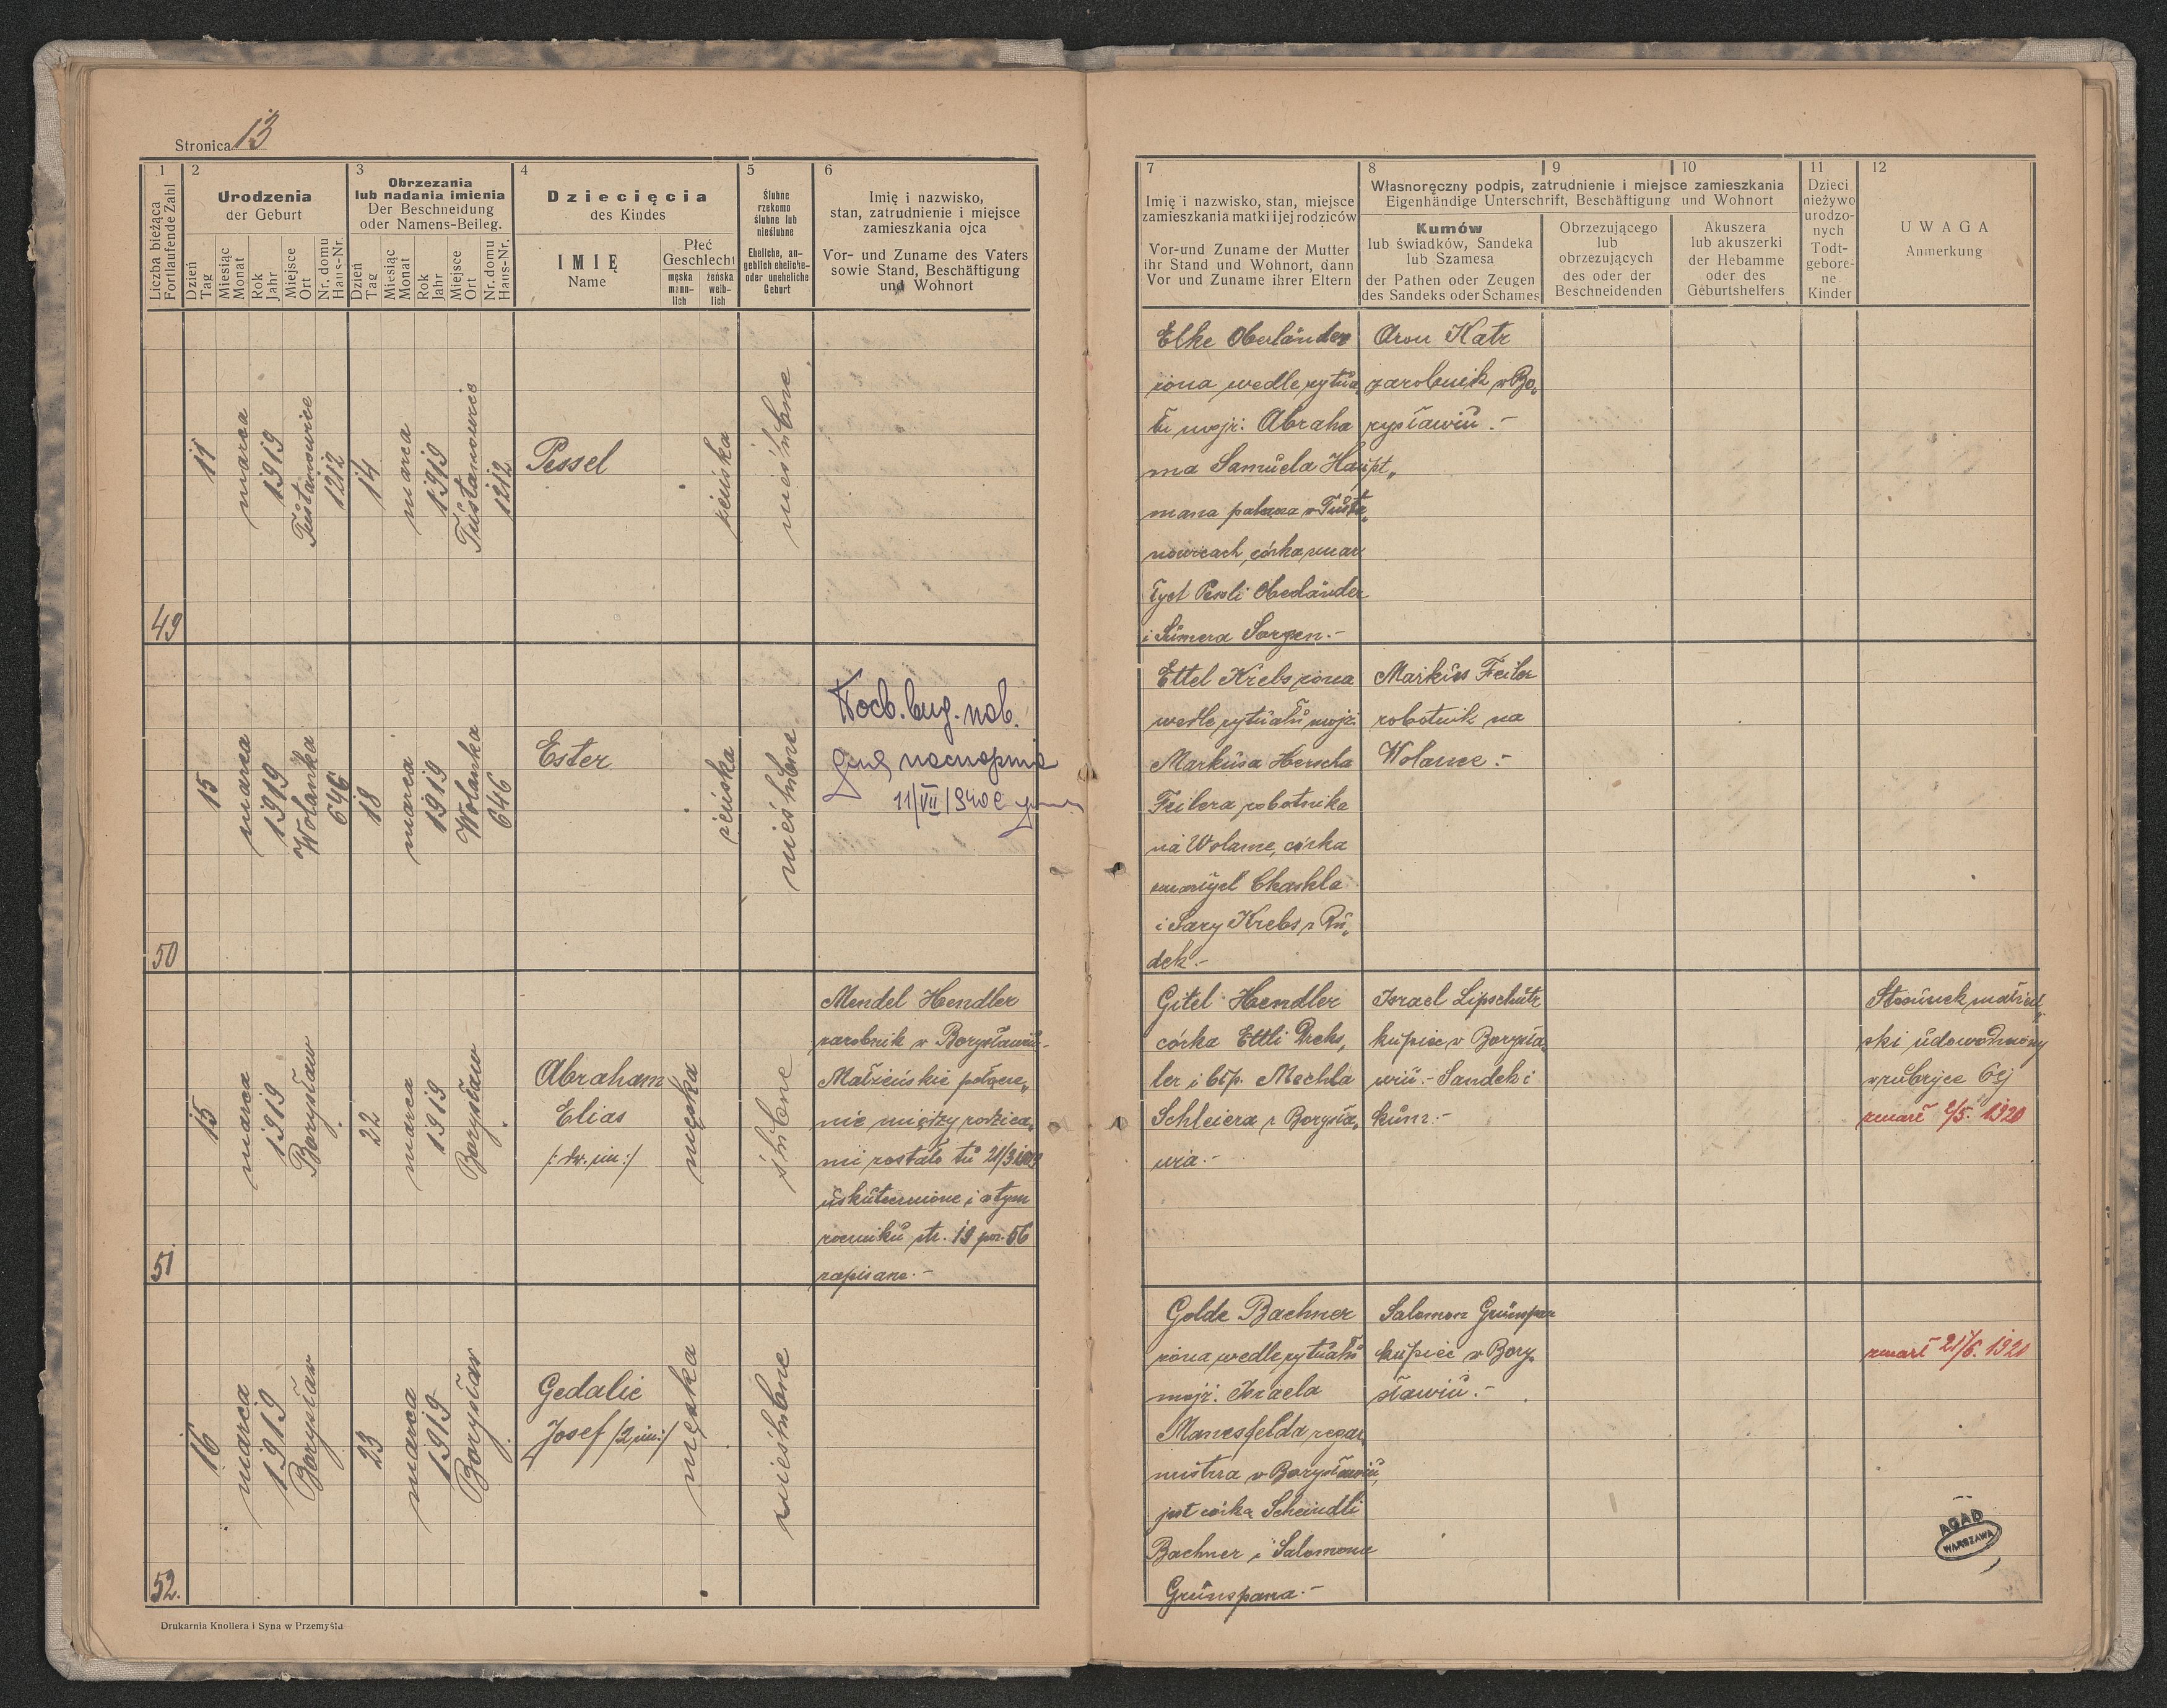 Stronica 13
1
Liczba bieżąca
Fortlaufende Zahl
2
Urodzenia
der Geburt
Dzień
Tag
Miesiąc
Monat
Rok
Jahr
Miejsce
Ort
Nr. domu
Haus-Nr.
3
Obrzezania
lub nadania imienia
Der Beschneidung
oder Namens-Beileg.
Dzień
Tag
Miesiąc
Monat
Rok
Jahr
Miejsce
Ort
Nr. domu
Haus-Nr.
4
Dziecięcia
des Kindes
IMIĘ
Name
Płeć
Geschlecht
męska
männ-
lich
żeńska
weib-
lich
5
Ślubne
rzekomo
ślubne lub
nieślubne
Eheliche, an-
geblich eheliche-
oder uneheliche
Geburt
6
Imię i nazwisko,
stan, zatrudnienie i miejsce
zamieszkania ojca
Vor- und Zuname des Vaters
sowie Stand, Beschäftigung
und Wohnort
7
Imię i nazwisko, stan, miejsce
zamieszkania matki i jej rodziców
Vor-und Zuname der Mutter
ihr Stand und Wohnort, dann
Vor und Zuname ihrer Eltern
8
9
10
Własnoręczny podpis, zatrudnienie i miejsce zamieszkania
Eigenhändige Unterschrift, Beschäftigung und Wohnort
Kumów
lub świadków, Sandeka
lub Szamesa
der Pathen oder Zeugen
des Sandeks oder Schames
Obrzezującego
lub
obrzezujących
des oder der
Beschneidenden
Akuszera
lub akuszerki
der Hebamme
oder des
Geburtshelfers
11
Dzieci
nieżywo
urodzo-
nych
Todt-
gebore-
ne
Kinder
12
UWAGA
Anmerkung
49
11
marca
1919
Tustanowice
1212
14
marca
1919
Tustanowice
1212
Pessel
żeńska
nieślubne
Elke Oberländer
żona wedle rytua
łu mojż. Abraha
ma Samuela Haupt„
mana palacza w Tusta„
nowicach, córka zmar
łych Pesli Oberländer
i Sumera Sorgen.-
Aron Katz
zarobnik w Bo„
rysławiu.-
50
15
marca
1919
Wolanka
646
18
marca
1919
Wolanka
646
Ester
żeńska
nieślubne
11/VII 1940
Ettel Krebs żona
wedle rytuału mojż.
Markusa Herscha
Feilera robotnika
na Wolance, córka
zmarłych Chaskla
i Sary Krebs z Ru„
dek.-
Markus Feiler
robotnik na
Wolance.-
51
15
marca
1919
Borysław
22
marca
1919
Borysław
Abraham
Elias
/: dw. im :/
męska
ślubne
Mendel Hendler
zarobnik w Borysławiu.-
Małżeńskie połącze„
nie między rodzica„
mi zostało tu 21/3
uskutecznione i w tym
roczniku str. 19 poz. 56
zapisane.-
Gitel Hendler
córka Ettli Drechs„
ler i Mechla
Schleiera z Borysła„
wia.-
Israel Lipschutz
kupiec w Borysła„
wiu.- Sandek i
kum.-
Stosunek małżeń„
ski udowodniony
w rubryce 6ej
zmarł 2/5. 1920
52.
16
marca
1919
Borysław
23
marca
1919
Borysław
Gedalie
Josef /2 im:/
męska
nieślubne
Golde Bachner
żona wedle rytuału
mojż. Israela
Mannsfelda zegar„
mistrza w Borysławiu,
jest córką Scheindli
Bachner i Salomona
Grünspana.-
Salomon Grünspan
kupiec w Bory„
sławiu.-
zmarł 21/6. 1920
AGAD
WARSZAWA
Drukarnia Knollera i Syna w Przemyślu